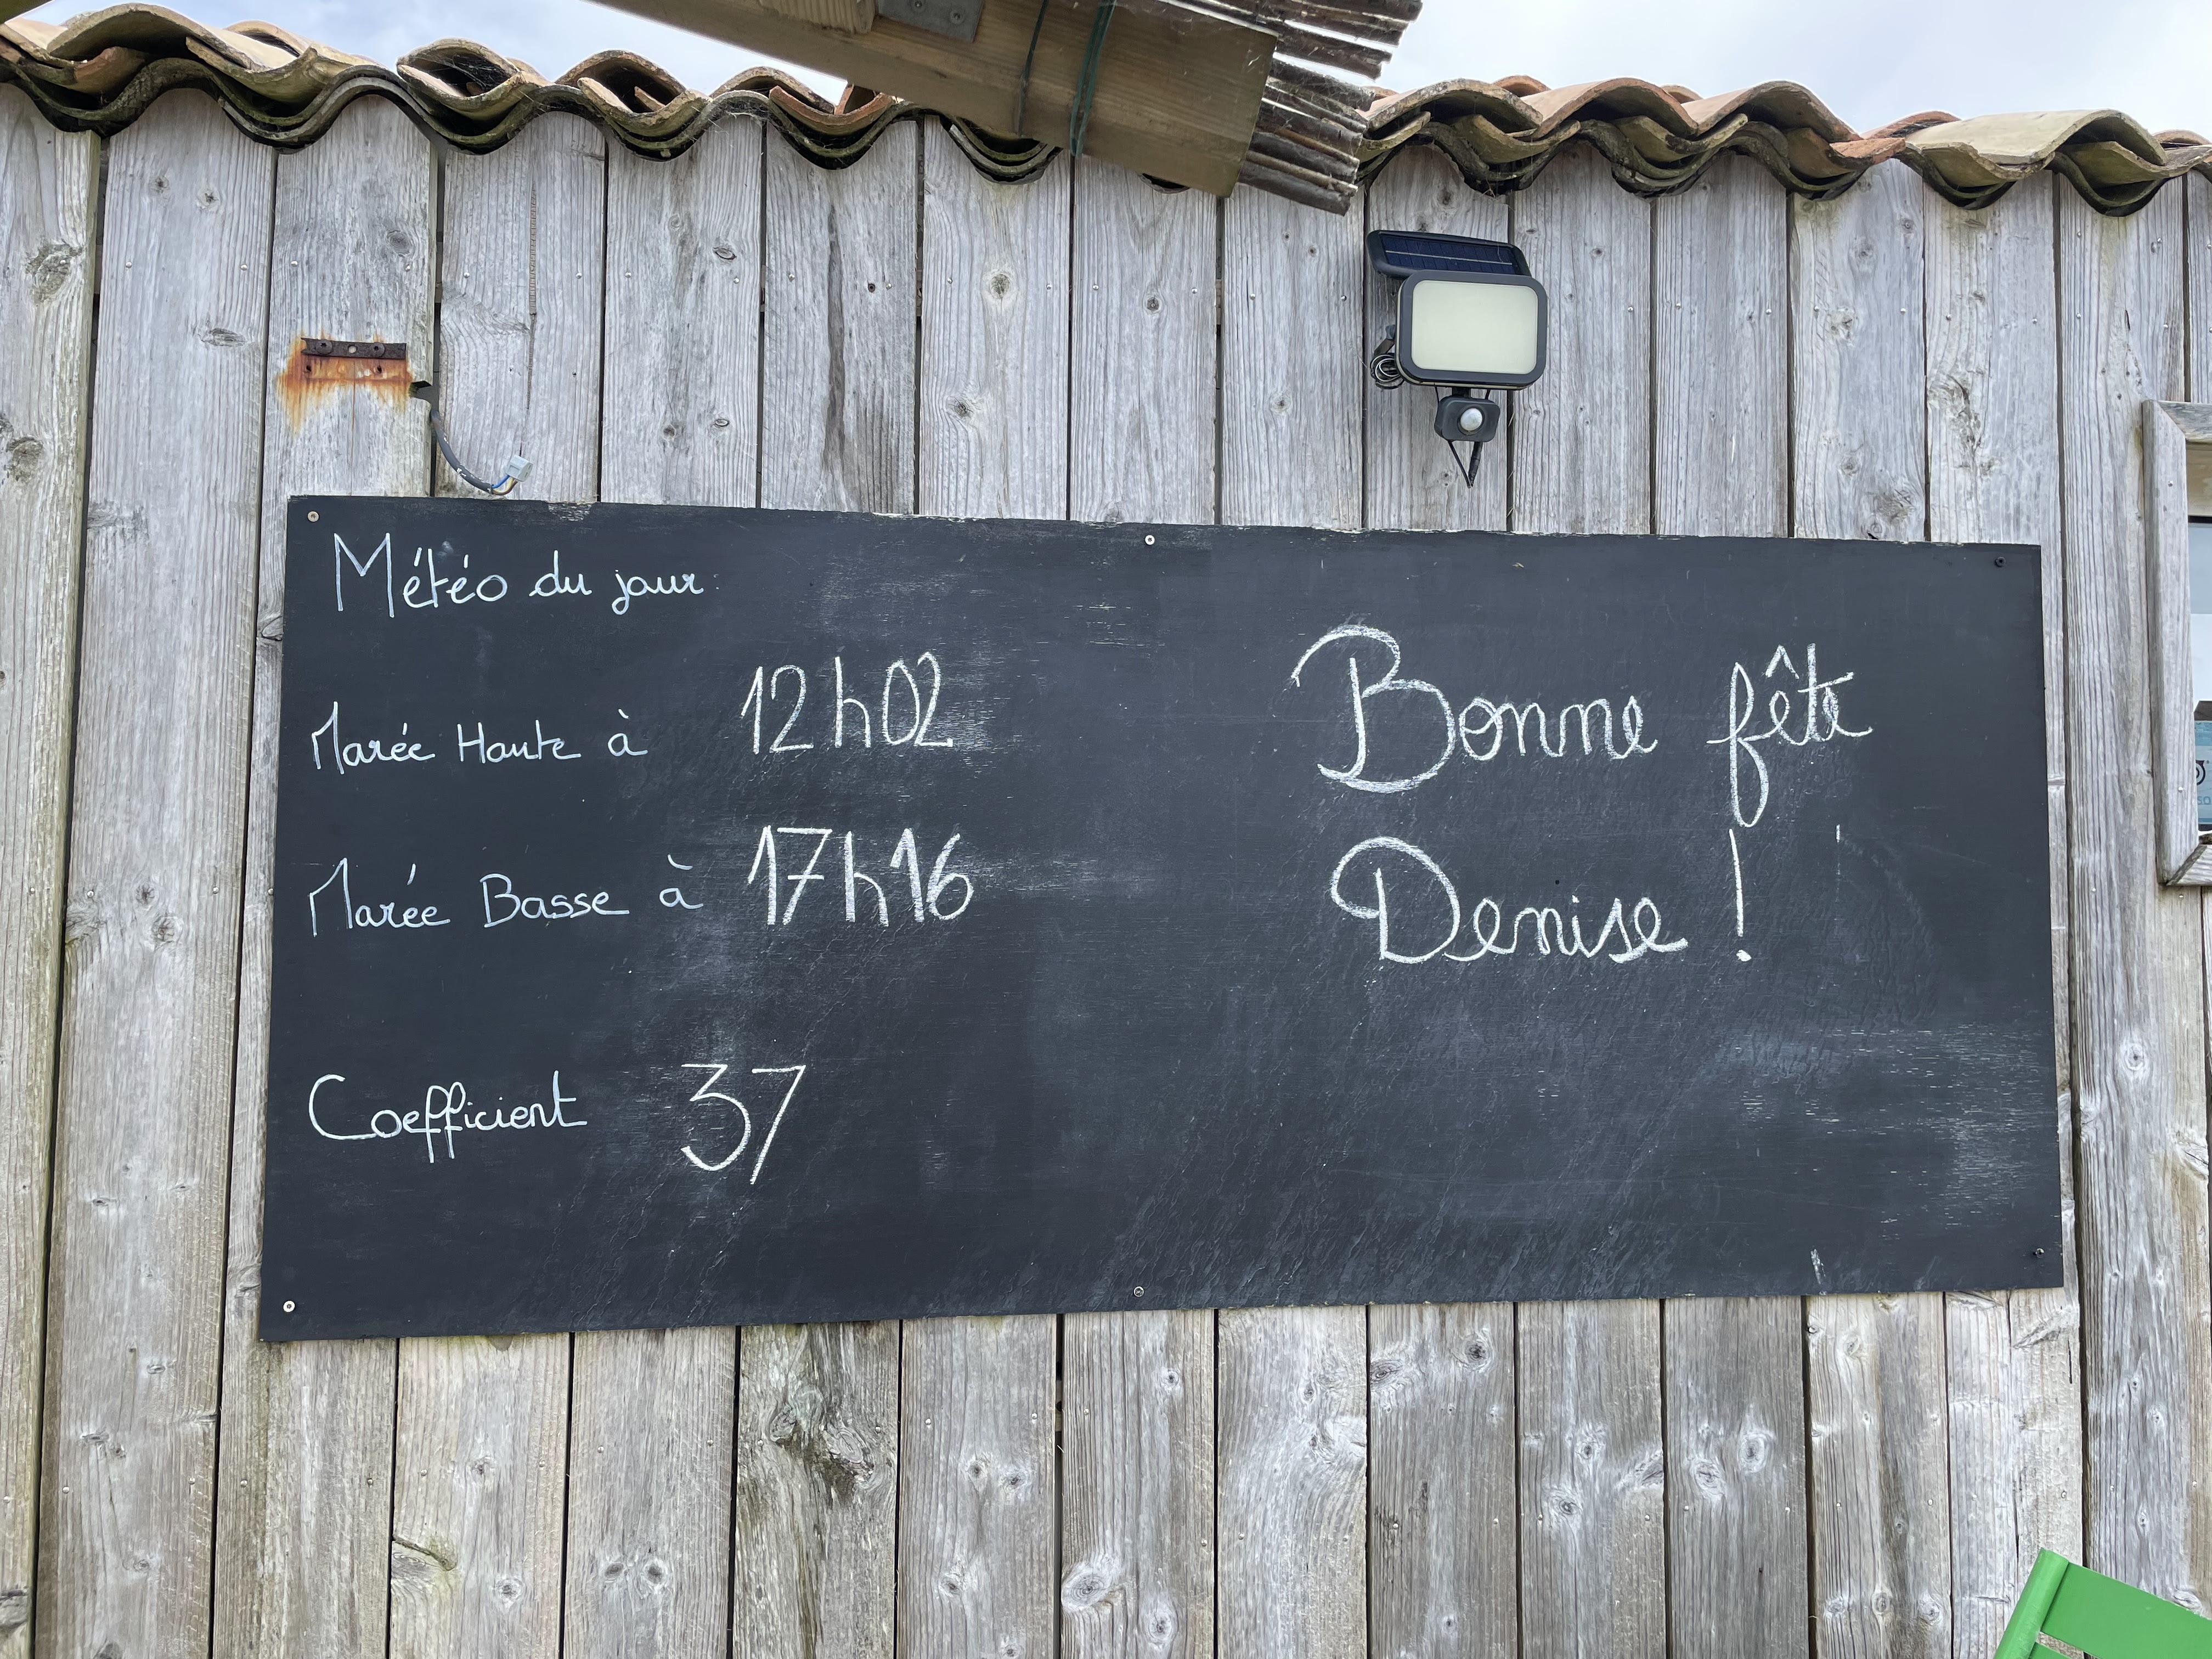 Météo du jour
Marée Haute à 12h02
Marée Basse à 17h16
Coefficient 37
Bonne fête
Denise !